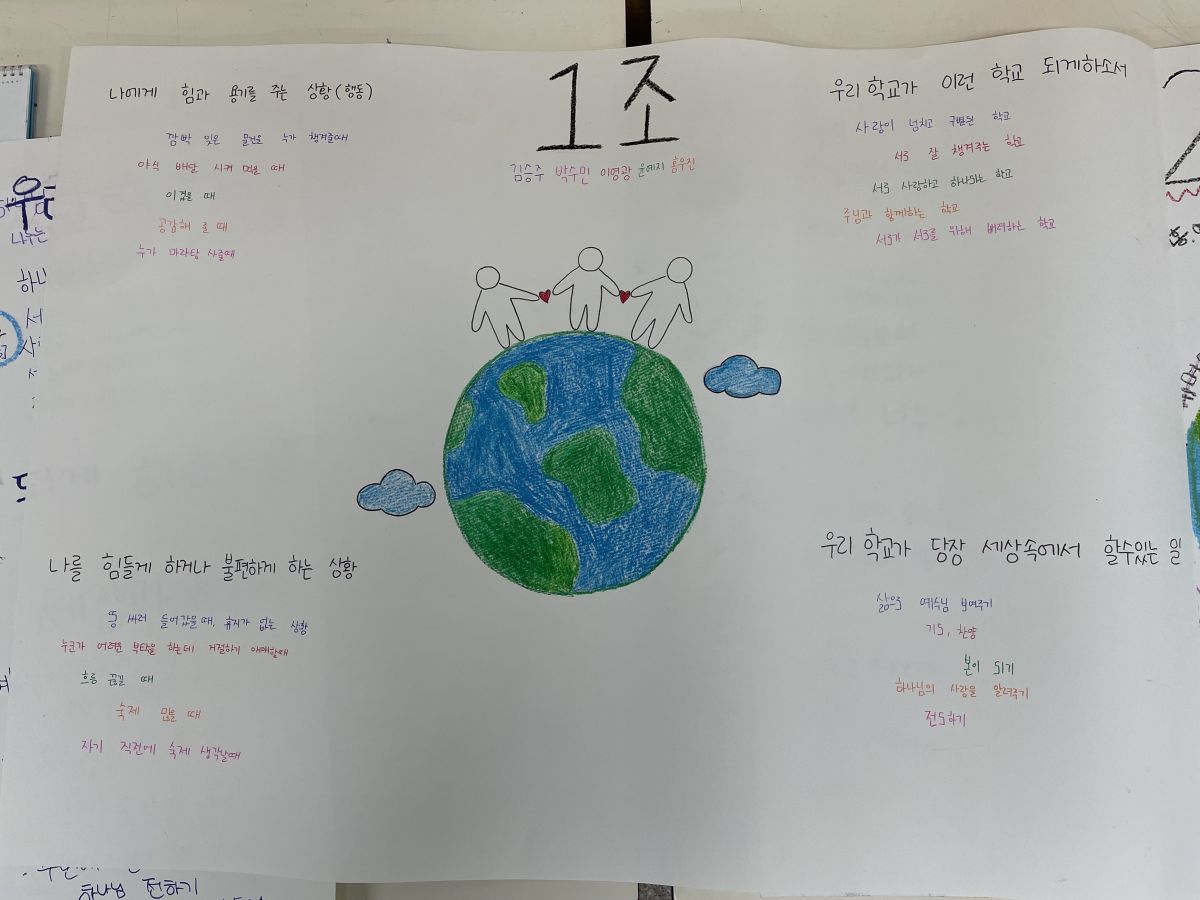 1조
김승주 박수민 이영광 윤예지 홍우진
나에게 힘과 용기를 주는 상황(행동)
깜빡 잊은 물건을 누가 챙겨줄때
야식 배달 시켜 먹을 때
이겼을 때
공감해 줄 때
누가 마라탕 사줄때
우리 학교가 이런 학교 되게하소서
사랑이 넘치고 구별된 학교
서로 잘 챙겨주는 학교
서로 사랑하고 하나되는 학교
주님과 함께하는 학교
서로가 서로를 위해 배려하는 학교
나를 힘들게 하거나 불편하게 하는 상황
똥 싸러 들어갔을때, 휴지가 없는 상황
누군가 어려운 부탁을 하는데 거절하기 애매할때
흐름 끊길 때
숙제 많을 때
자기 직전에 숙제 생각날때
우리 학교가 당장 세상속에서 할수있는 일
삶으로 예수님 보여주기
기도, 찬양
본이 되기
하나님의 사랑을 알려주기
전도하기
나누는
하나
서
사
하나님 전하기
2